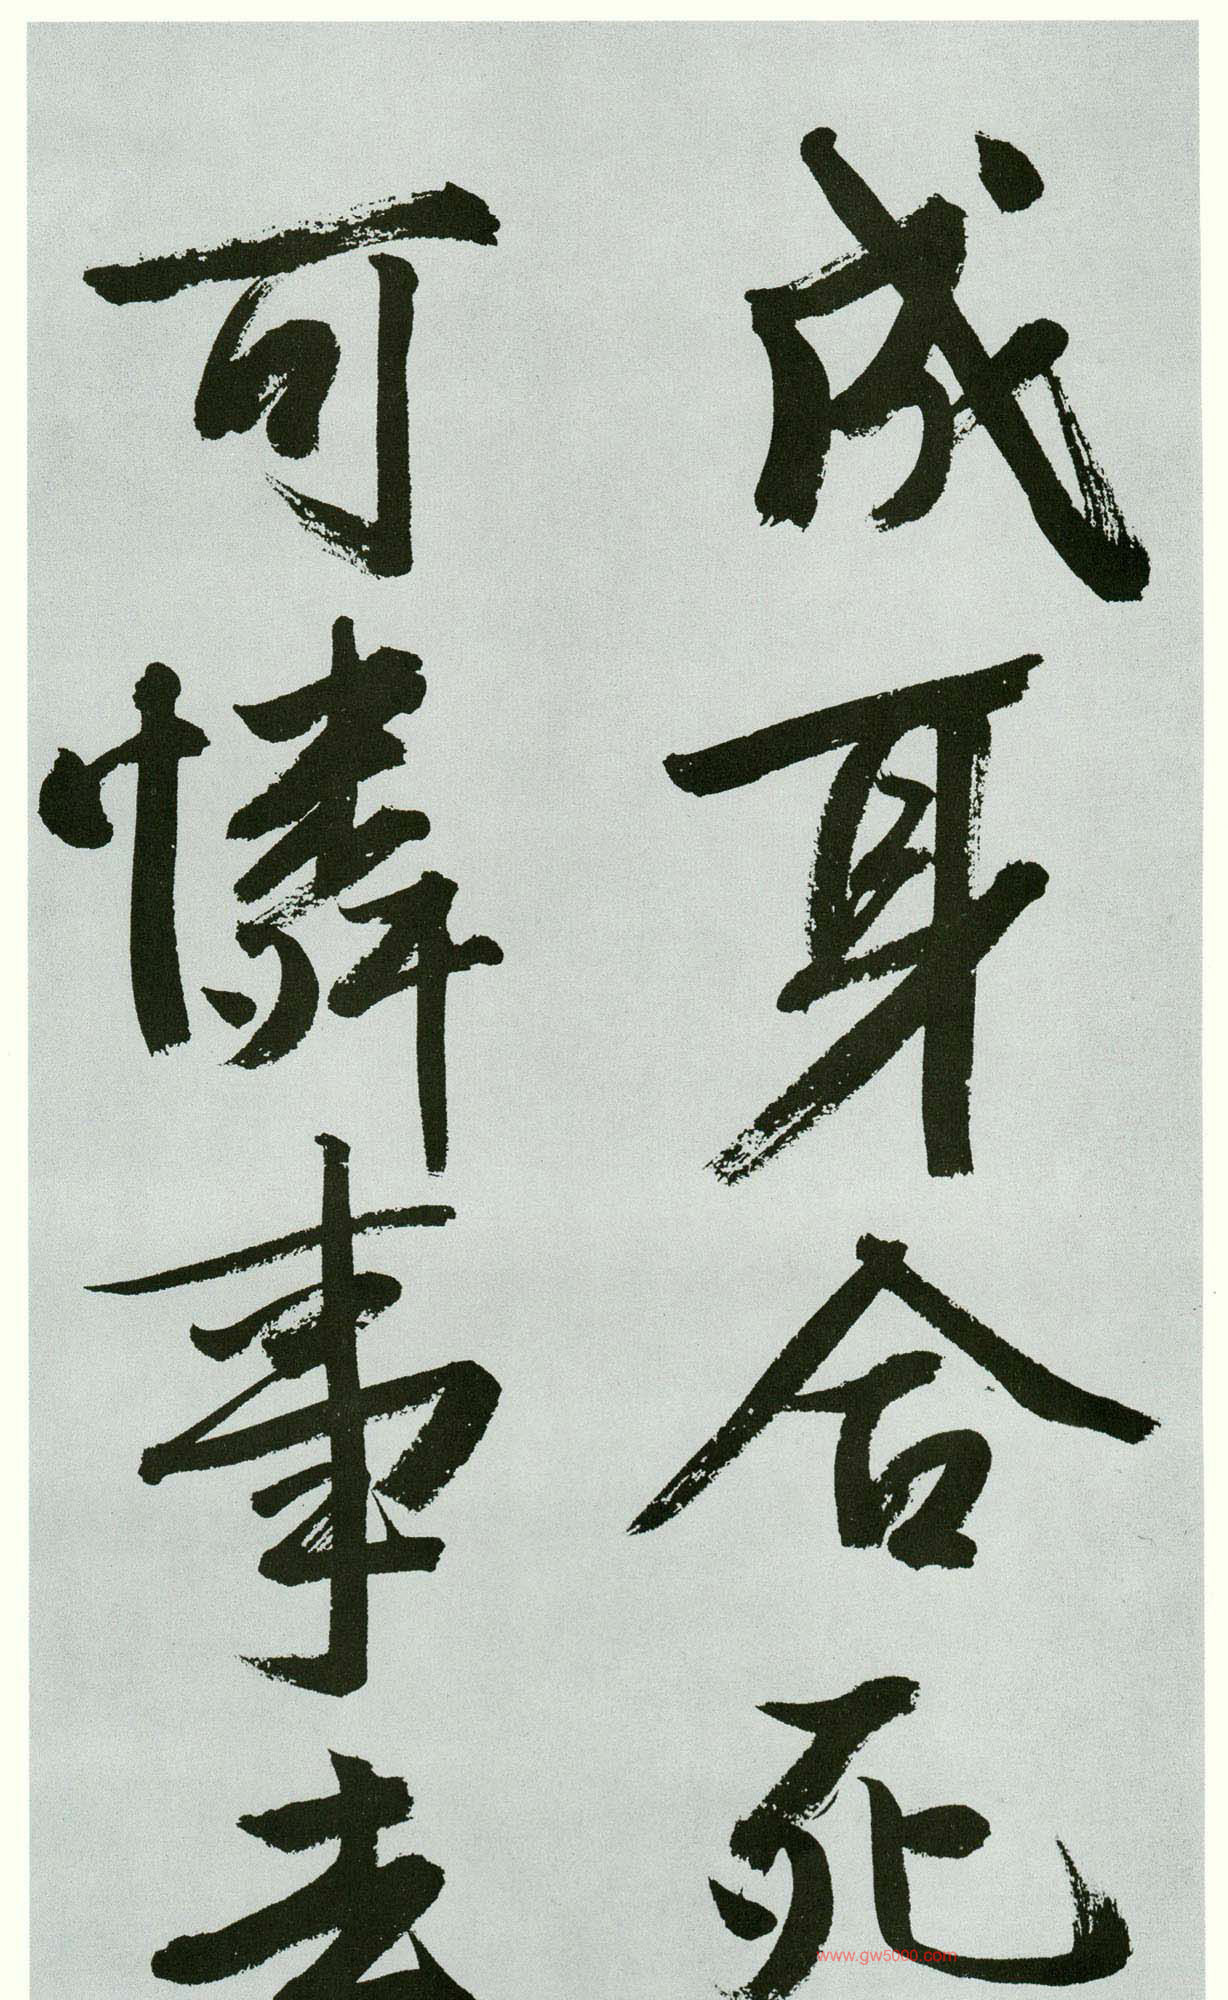 成身合死
可憐事去
www.gw5000.com